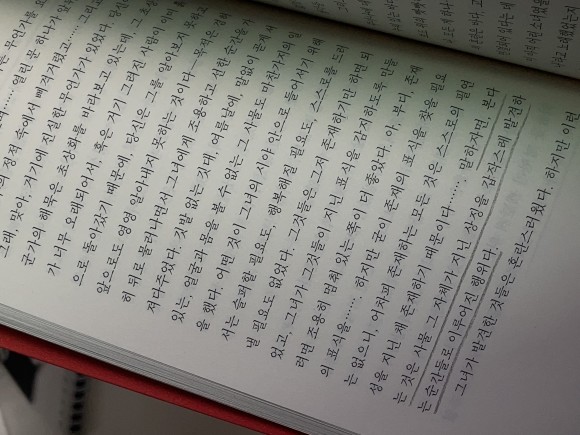 는 무언가를
열린 문 하나가
의 정적 속에서 삐걱거렸고…… 그러
그래, 맞아, 거기에 진실한 무언가가 있었다. 당신
군가의 행복은 초상화를 바라보고 있는데, 그
가 너무 오래되어서, 혹은 거기 그려진 사람이 이미 흙
으로 돌아갔기 때문에, 당신은 그를 알아보지 못하고
앞으로도 영영 알아내지 못하는 것이다
히 뒤로 물러나면서 그녀에게 조용하고 선한 순간을 가
져다주었다. 깃발 없는 깃대, 여름날에, 말없이 굳게 서
있는, 얼굴과 몸을 볼 수 없는 그 사물도 마찬가지의 일
을 했다. 어떤 것이 그녀의 시야 안으로 들어서기 위해
서는 슬퍼할 필요도, 행복해질 필요도, 스스로를 드러
낼 필요도 없었다. 그것들은 그저 존재하기만 하면 되
었고, 그녀가 그것들이 지닌 표식을 감지하도록 만들
려면 조용히 멈춰 있는 쪽이 더 좋았다. 아, 부디, 존재
의 표식을…… 하지만 굳이 존재의 표식을 찾을 필요
는 없으니, 어차피 존재하는 모든 것은 스스로의 필연
성을 지닌 채 존재하기 때문이다…… 말하자면, 본다
는 것은 사물 그 자체가 지닌 상징을 갑작스레 발견하
는 순간들로 이루어진 행위다.
그녀가 발견한 것들은 혼란스러웠다. 하지만 이런